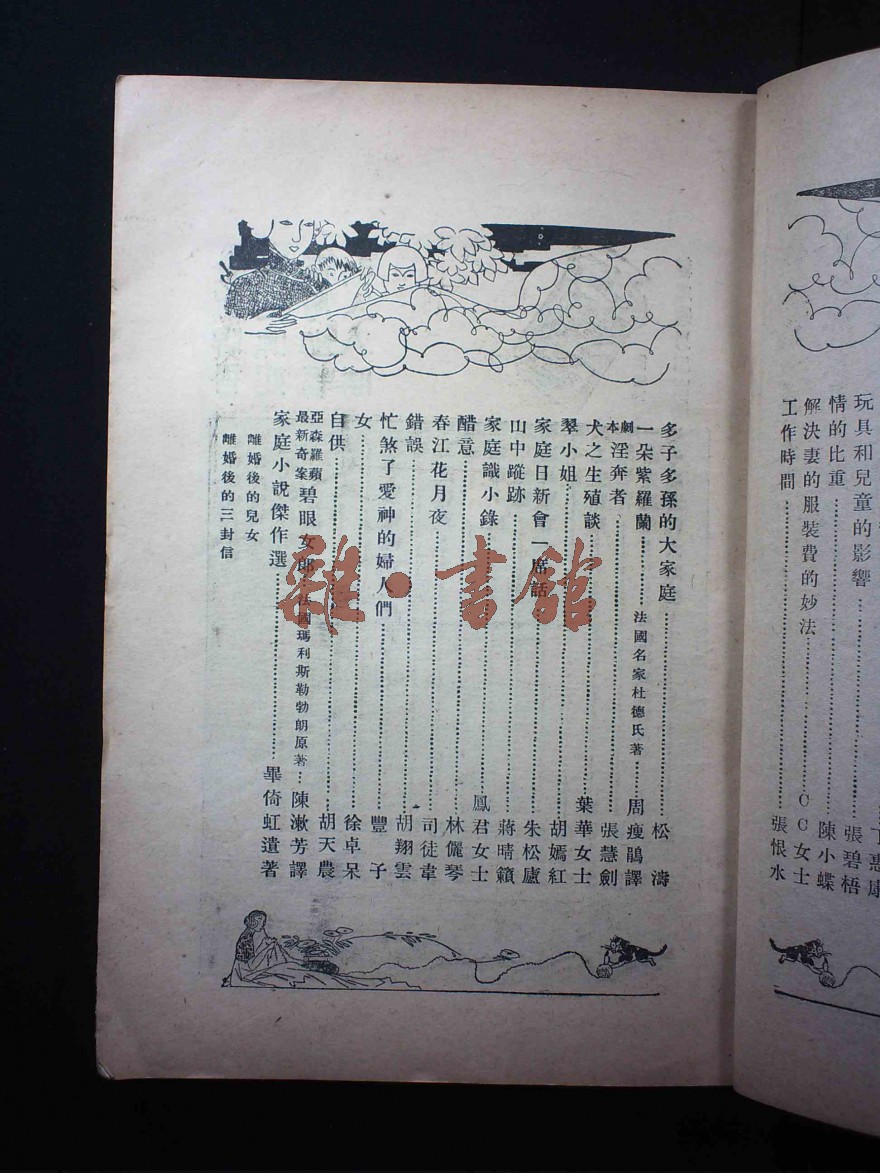 惠康
玩具和兒童的影響……張碧梧
情的比重……陳小蝶
解決妻的服裝費的妙法……CC女士
工作時間……張恨水
多子多孫的大家庭……松濤
一朵紫羅蘭……法國名家杜德氏著……周瘦鵑譯
劇本淫奔者……張慧劍
犬之生殖談……葉華女士
翠小姐……胡嫣紅
家庭日新會一席話……朱松廬
山中蹤跡……蔣晴籟
家庭識小錄……鳳君女士
醋意……林儷琴
春江花月夜……司徒韋
錯誤……胡翔雲
忙煞了愛神的婦人們……豐子
女……徐卓呆
自供……胡天農
亞森羅蘋最新奇案碧眼女郎 法國瑪利斯勒勃朗原著……陳漱芳譯
家庭小說傑作選……畢倚虹遺著
離婚後的兒女
離婚後的三封信
雜·書館